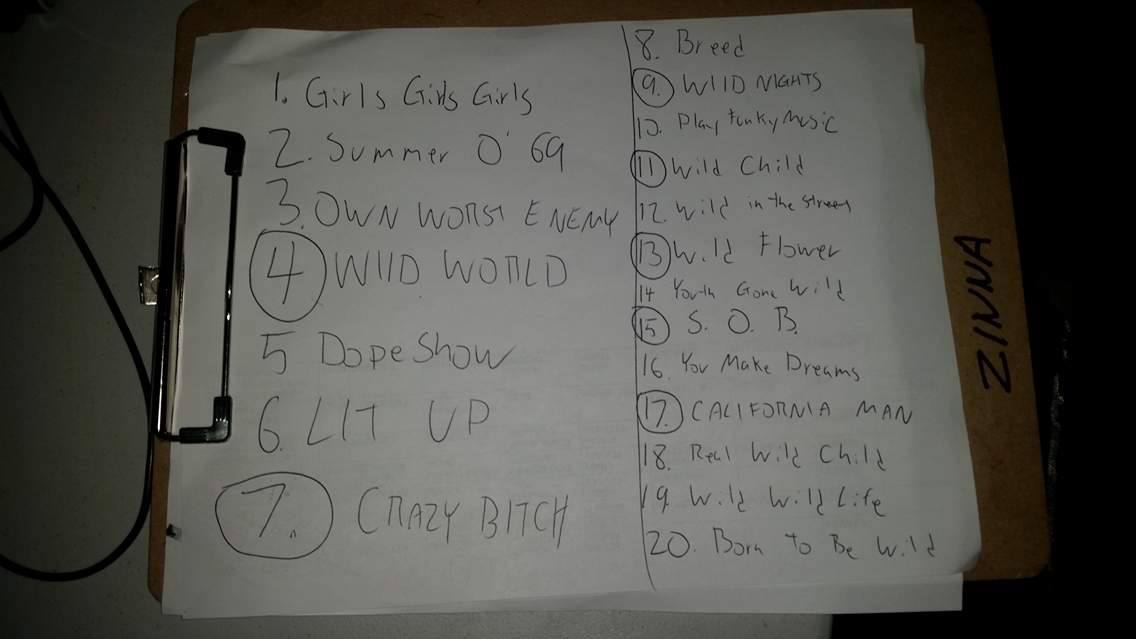 1. Girls Girls Girls
2. Summer O' 69
3. OWN WORST ENEMY
4 WILD WORLD
5 Dope Show
6. LIT UP
7. CRAZY BITCH
8. Breed
9. WILD NIGHTS
10. Play Funky Music
11 Wild Child
12. Wild in the streets
13 Wild Flower
14 Youth Gone Wild
15 S. O. B.
16. You Make Dreams
17. CALIFORNIA MAN
18. Real Wild Child
19. Wild Wild Life
20. Born To Be Wild
ZINNA